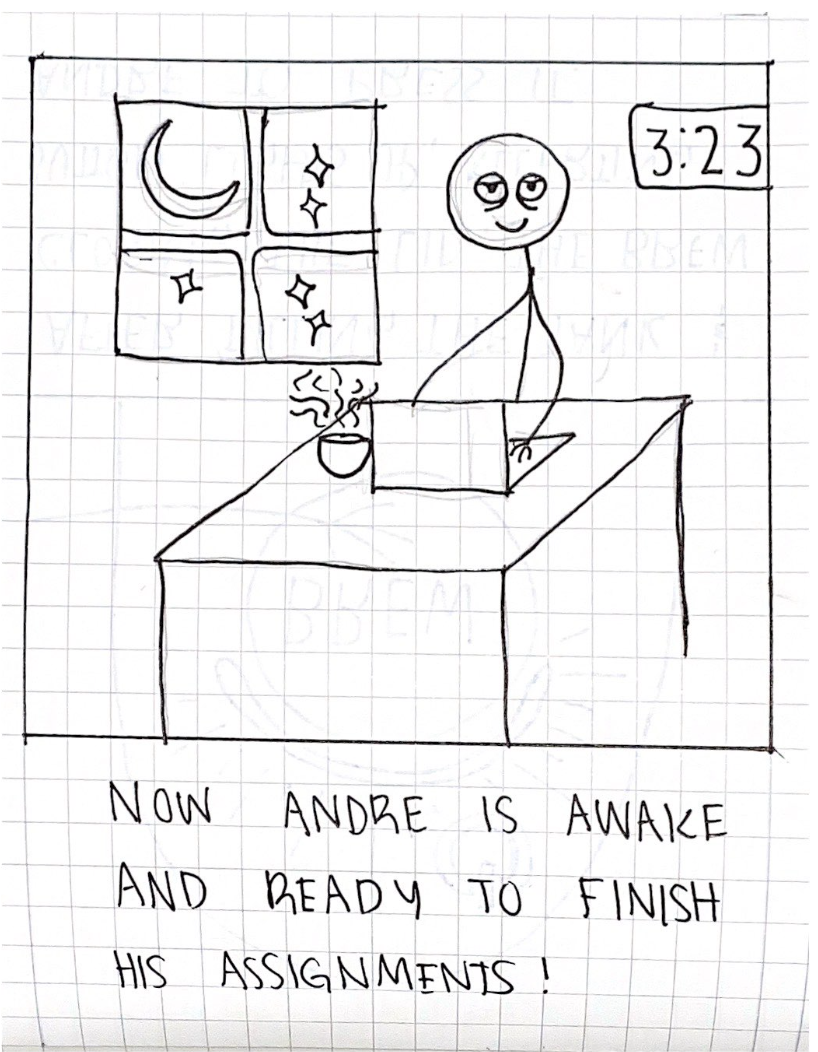 3:23
NOW ANDRE IS AWAKE
AND READY TO FINISH
HIS ASSIGNMENTS!